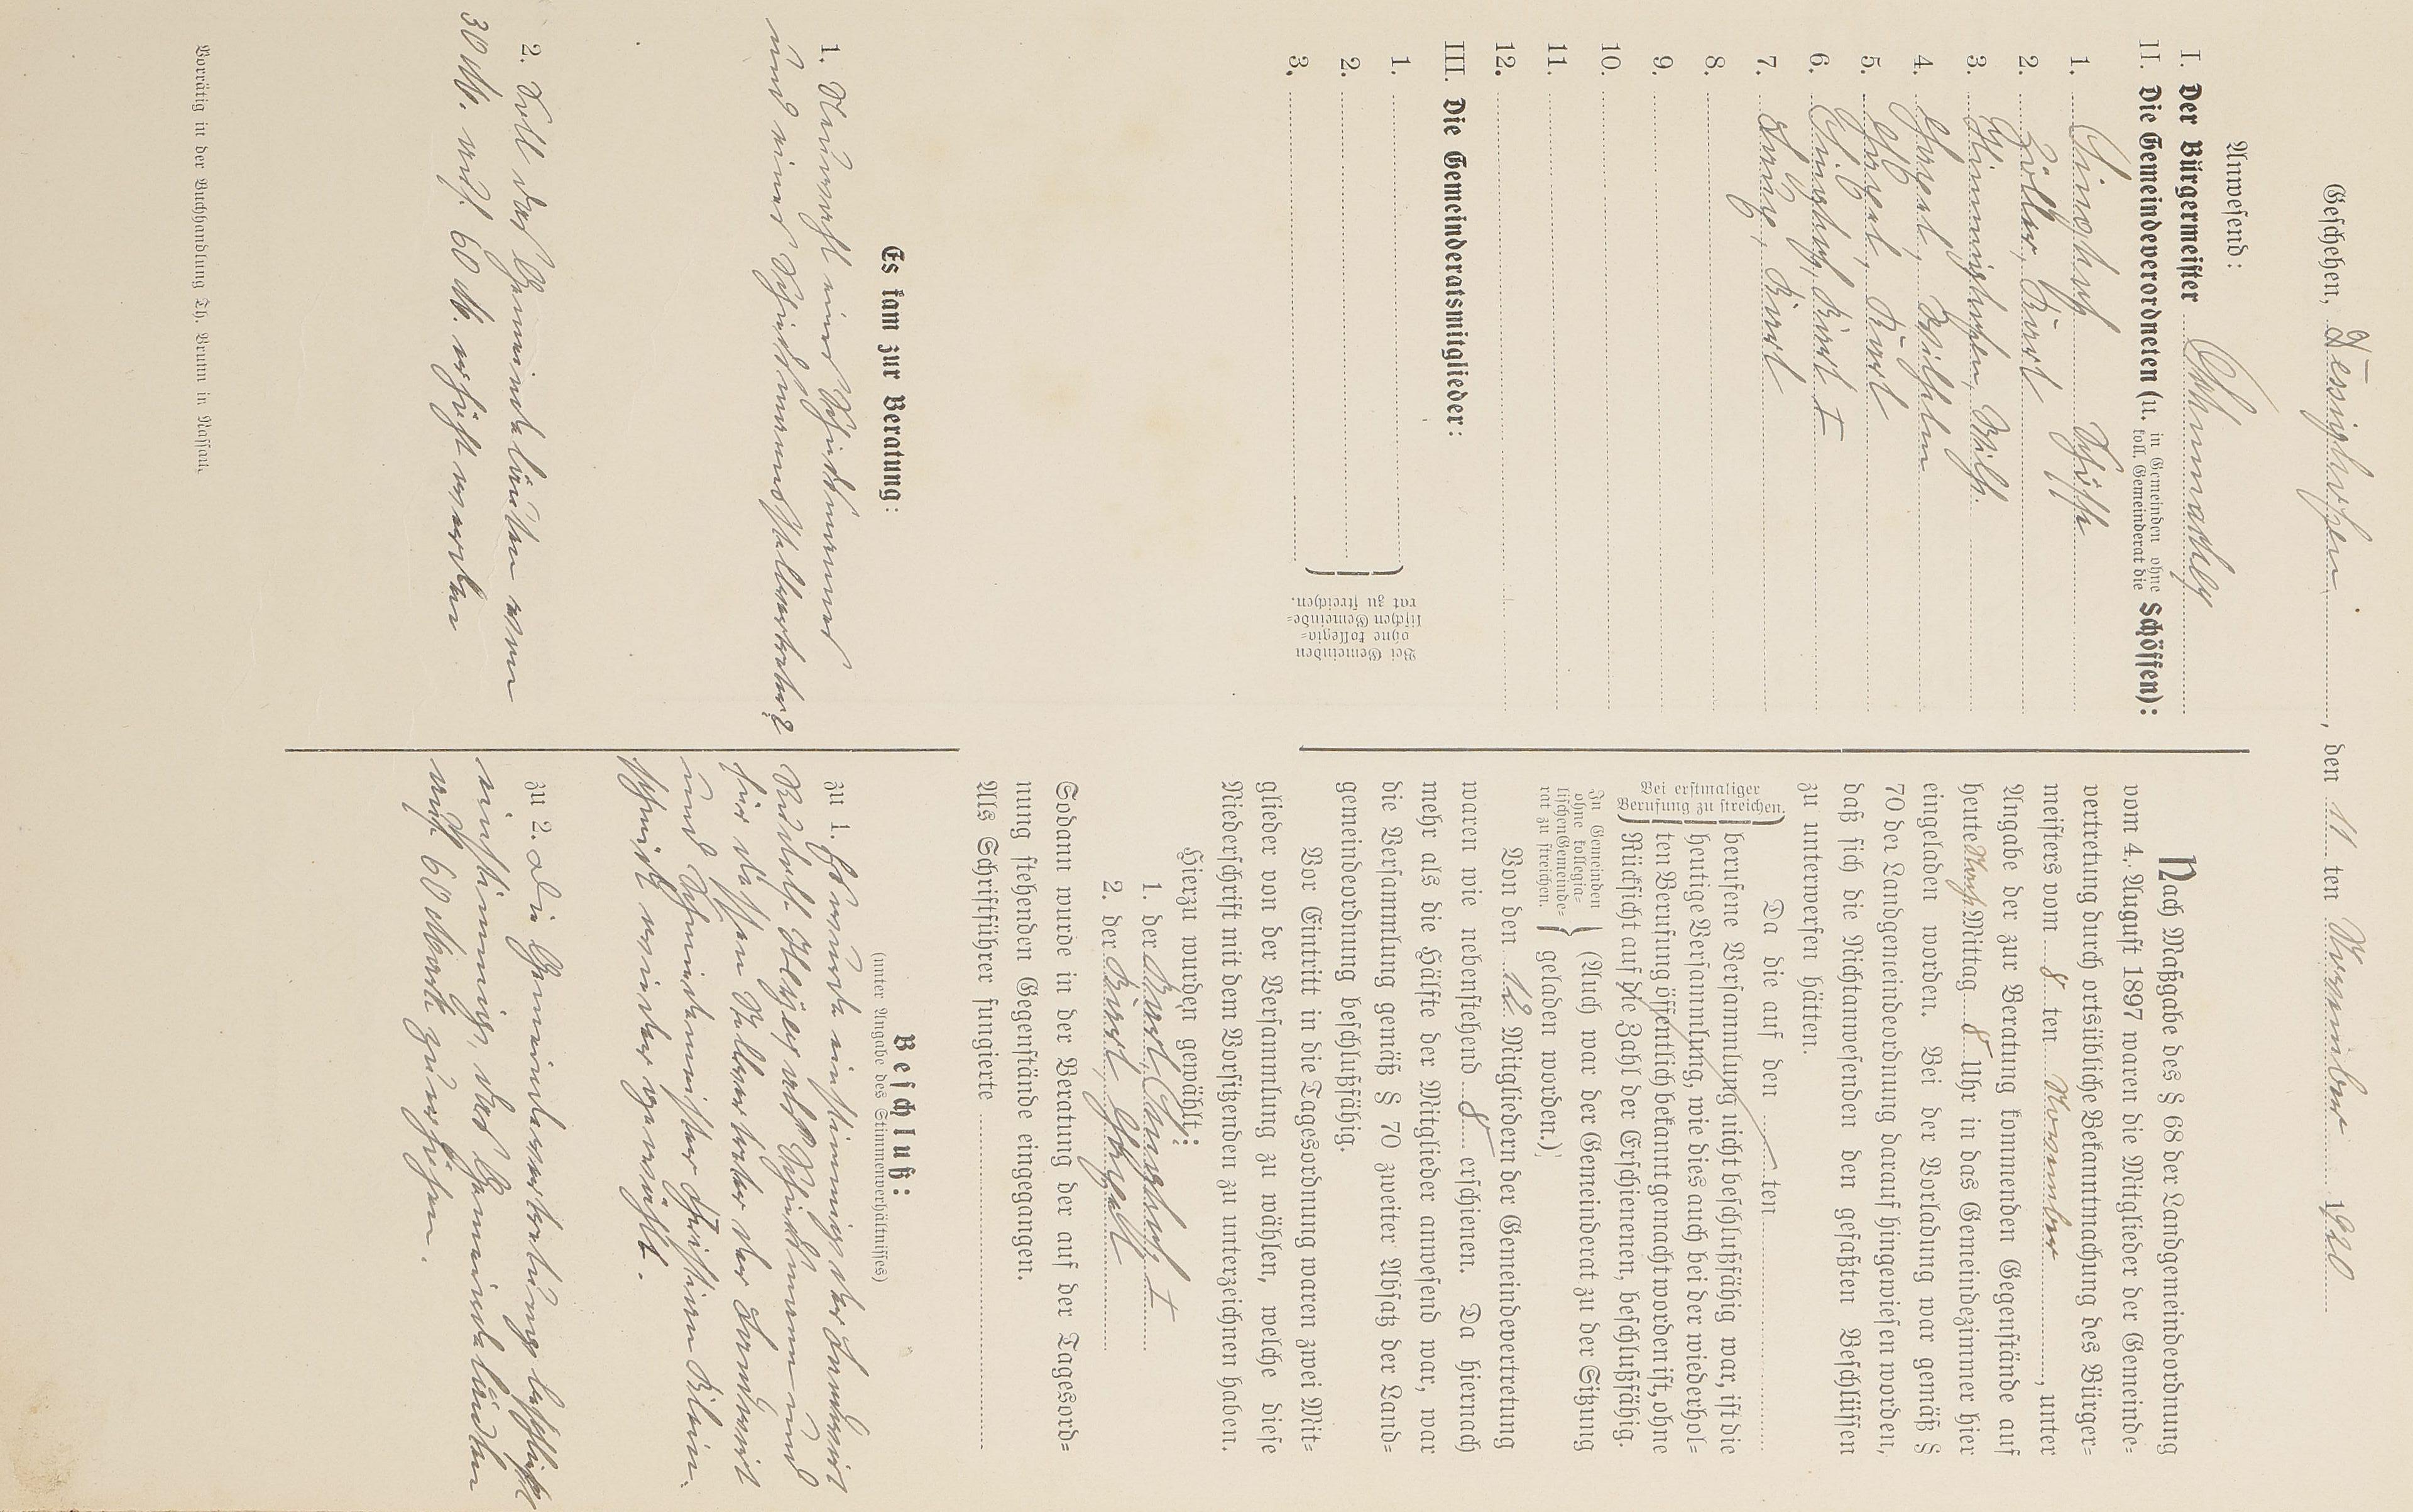 Geschehen, Dessighofen, den 11 ten November 1920
Anwesend:
I. Der Bürgermeister
II. Die Gemeindeverordneten (u. in Gemeinden ohne koll. Gemeinderat die Schöffen):
1. Schöffe
2. Karl
3. Wilh.
4. Wilhelm
5. Karl
6. Karl I
7. Karl
8.
9.
10.
11.
12.
III. Die Gemeinderatsmitglieder:
1.
2.
3.
Bei Gemeinden
ohne kollegia-
lischen Gemeinde-
rat zu streichen.
Nach Maßgabe des § 68 der Landgemeindeordnung
vom 4. August 1897 waren die Mitglieder der Gemeinde-
vertretung durch ortsübliche Bekanntmachung des Bürger-
meisters vom 8 ten November, unter
Angabe der zur Beratung kommenden Gegenstände auf
heute Nach Mittag 8 Uhr in das Gemeindezimmer hier
eingeladen worden. Bei der Vorladung war gemäß §
70 der Landgemeindeordnung darauf hingewiesen worden,
daß sich die Nichtanwesenden den gefaßten Beschlüssen
zu unterwerfen hätten.
Da die auf den ten
Bei erstmaliger
Berufung zu streichen.
berufene Versammlung nicht beschlußfähig war, ist die
heutige Versammlung, wie dies auch bei der wiederhol-
ten Berufung öffentlich bekannt gemacht worden ist, ohne
Rücksicht auf die Zahl der Erschienenen, beschlußfähig.
In Gemeinden
ohne kollegia-
lischen Gemeinde-
rat zu streichen.
(Auch war der Gemeinderat zu der Sitzung
geladen worden.)
Von den 12 Mitgliedern der Gemeindevertretung
waren wie nebenstehend 8 erschienen. Da hiernach
mehr als die Hälfte der Mitglieder anwesend war, war
die Versammlung gemäß § 70 zweiter Absatz der Land-
gemeindeordnung beschlußfähig.
Vor Eintritt in die Tagesordnung waren zwei Mit-
glieder von der Versammlung zu wählen, welche diese
Niederschrift mit dem Vorsitzenden zu unterzeichnen haben.
Hierzu wurden gewählt:
1. der Karl I
2. der Karl
Sodann wurde in der Beratung der auf der Tagesord-
nung stehenden Gegenstände eingegangen.
Als Schriftführer fungierte
Es kam zur Beratung:
1. Neuwahl eines Schiedsmannes
und eines Schiedsmannsstellvertreters
2. Soll das Gemeindeläuten von
30 M. auf 60 M. erhöht werden
Beschluß:
(unter Angabe des Stimmenverhältnisses)
zu 1. Es wurde einstimmig der Landwirt
als Schiedsmann und
für dessen Stellvertreter der Landwirt
und Schmiedemeister Christian Klein
wieder gewählt.
zu 2. Die Gemeindevertretung beschließt
einstimmig, das Gemeindeläuten
auf 60 Mark zu erhöhen.
Vorrätig in der Buchhandlung Th. Brunn in Nassau.